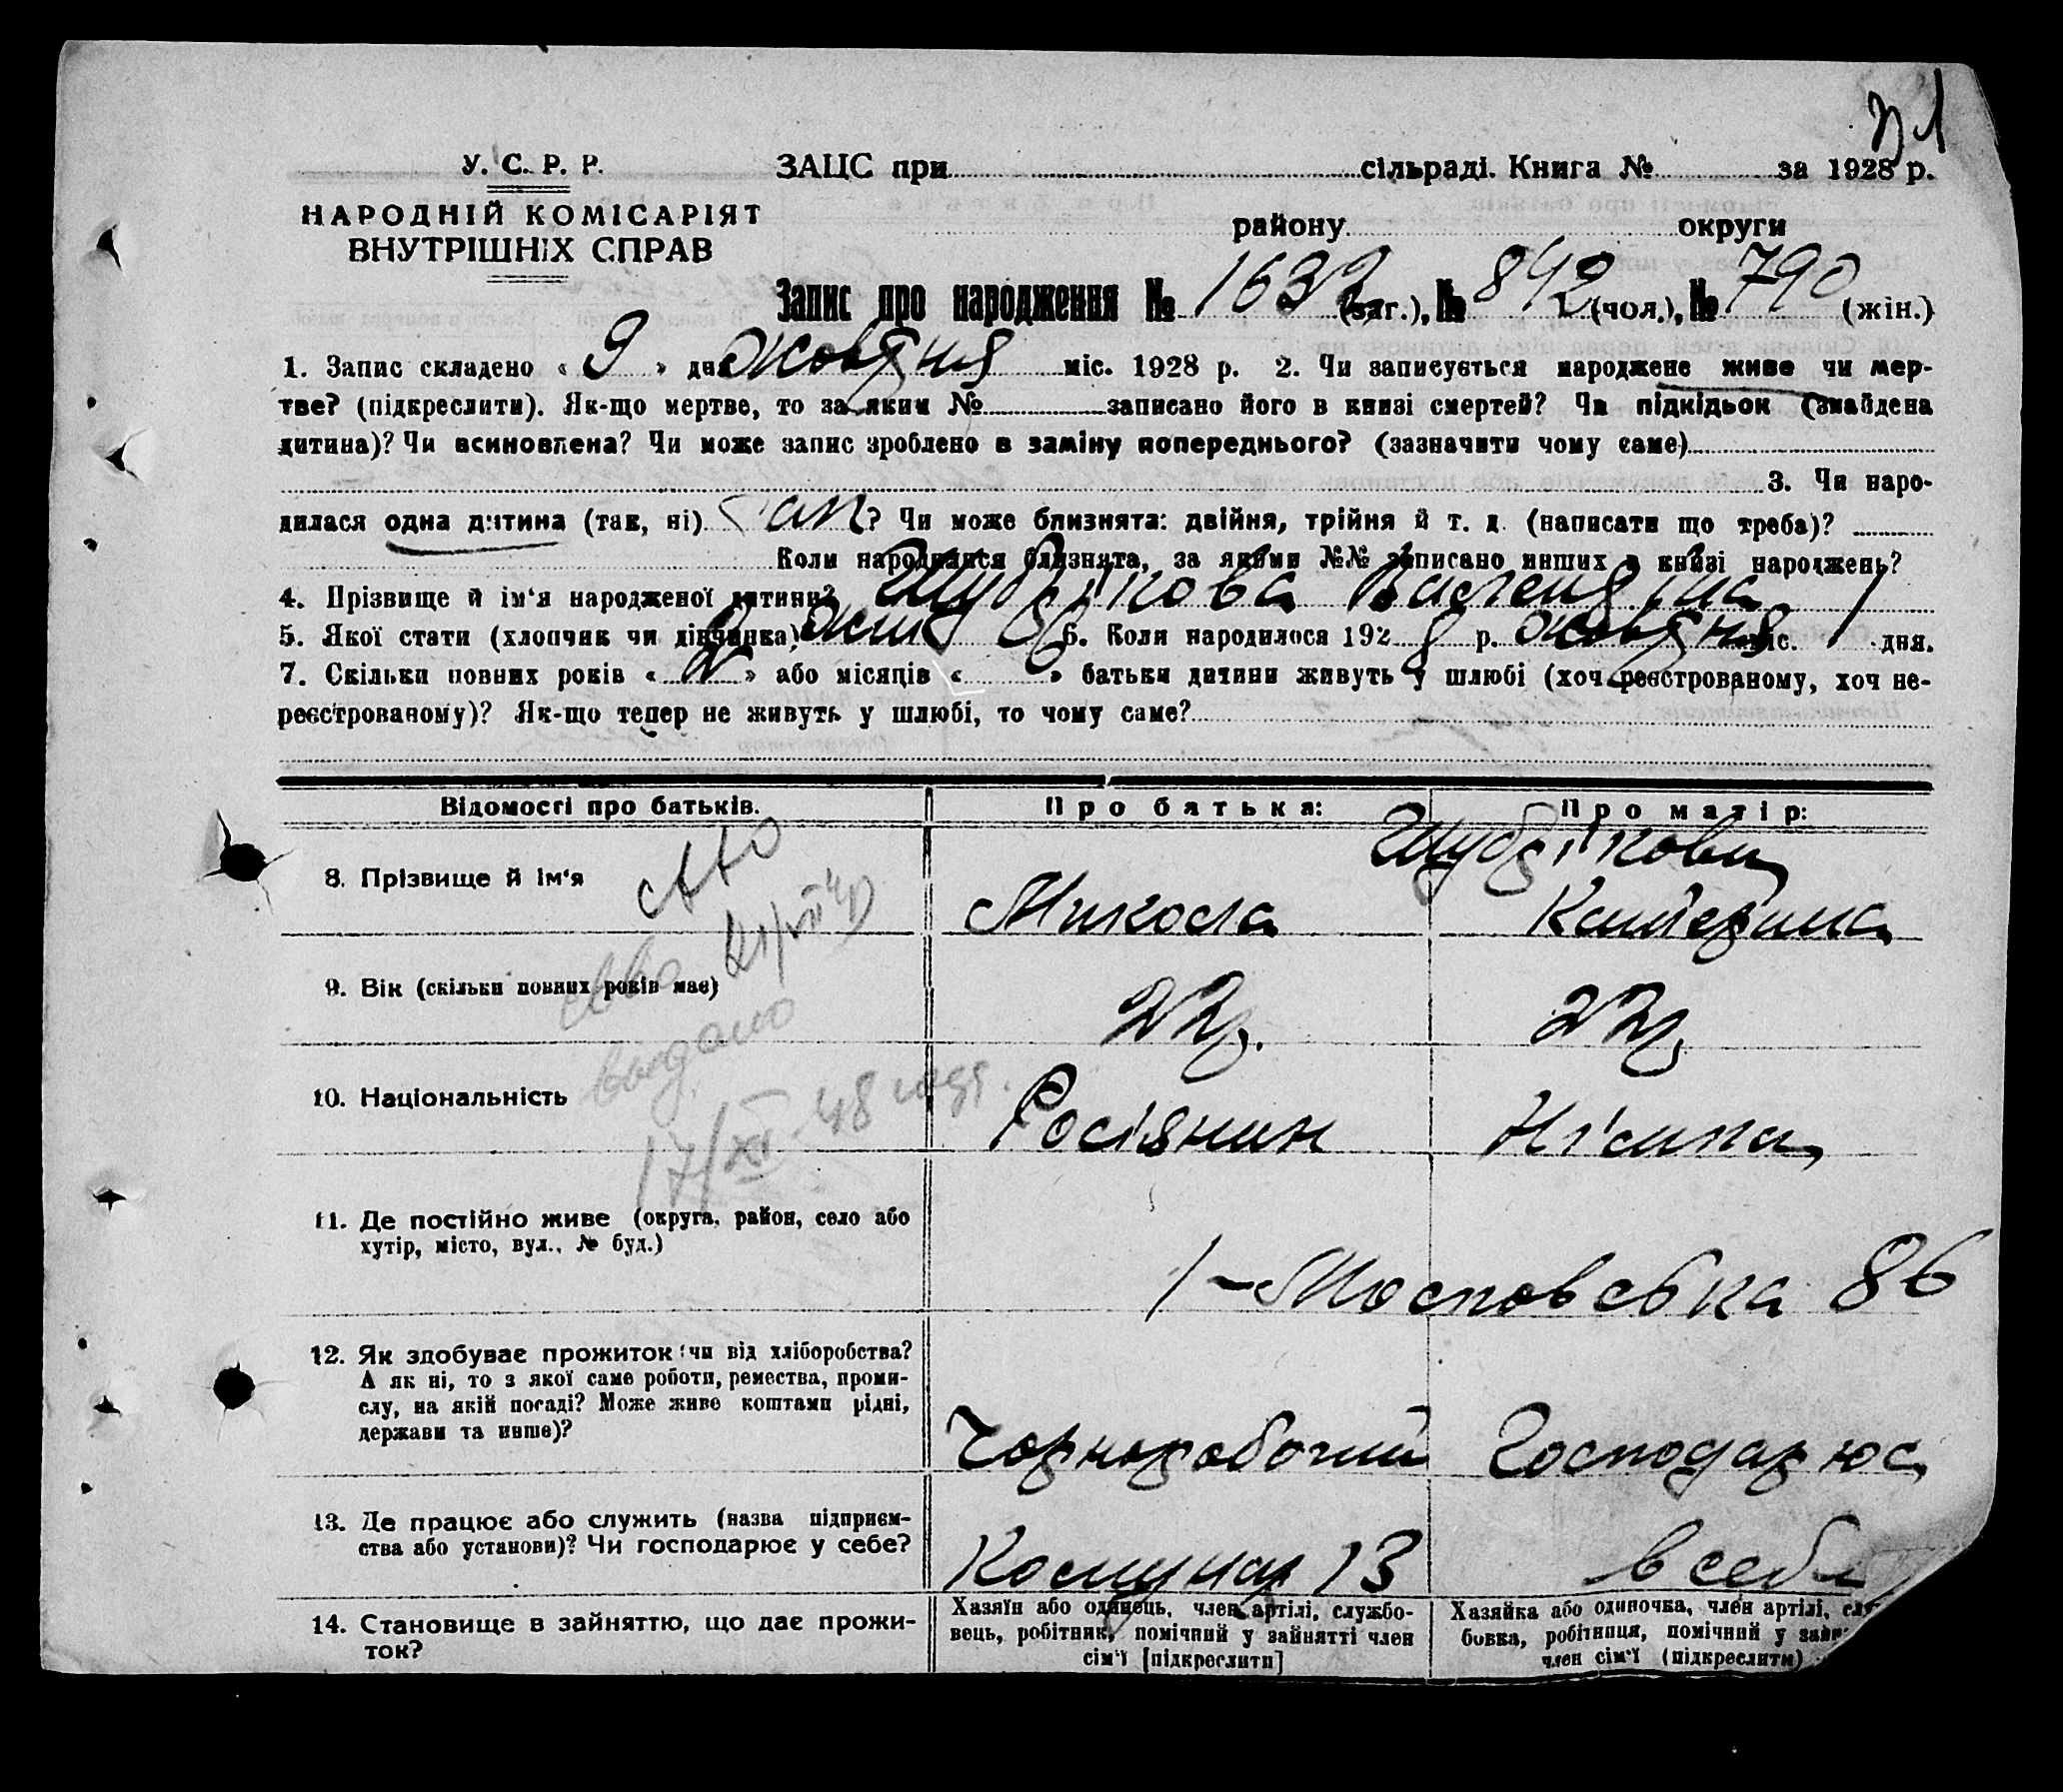 У. С. Р. Р.
НАРОДНІЙ КОМІСАРІЯТ
ВНУТРІШНІХ СПРАВ
ЗАЦС при сільраді. Книга № за 1928 р.
району округи
Запис про народження № 1632 (заг.), № 842 (чол.), № 790 (жін.)
1. Запис складено « 9 » дня жовтня міс. 1928 р. 2. Чи записується народжене живе чи мер-
тве? (підкреслити). Як-що мертве, то за яким № записано його в книзі смертей? Чи підкідьок (знайдена
дитина)? Чи всиновлена? Чи може запис зроблено в заміну попереднього? (зазначити чому саме)
3. Чи наро-
дилася одна дитина (так, ні) так? Чи може близнята: двійня, трійня й т. д. (написати що треба)?
Коли народилися близнята, за якими №№ записано инших в книзі народжень?
4. Прізвище й ім'я народженої дитини? Валентина
5. Якої стати (хлопчик чи дівчинка) 6. Коли народилося 1928 р. жовтня міс. 1 дня.
7. Скільки повних років « 2 » або місяців « » батьки дитини живуть у шлюбі (хоч реєстрованому, хоч не-
реєстрованому)? Як-що тепер не живуть у шлюбі, то чому саме?
Відомості про батьків.
Про батька:
Про матір:
8. Прізвище й ім'я
Микола
Катерина
9. Вік (скільки повних років має)
22р.
22р.
10. Національність
Росіянин
Німка
видано
17/XI-48 года.
11. Де постійно живе (округа, район, село або
хутір, місто, вул., № буд.)
1-Московська 86
12. Як здобуває прожиток: чи від хліборобства?
А як ні, то з якої саме роботи, ремества, проми-
слу, на якій посаді? Може живе коштами рідні,
держави та инше)?
Чорноробочий
Господарює
13. Де працює або служить (назва підприєм-
ства або установи)? Чи господарює у себе?
Комунар 13
в себе
14. Становище в зайняттю, що дає прожи-
ток?
Хазяїн або одинець, член артілі, службо-
вець, робітник, помічний у зайнятті член
сім'ї [підкреслити]
Хазяйка або одиночка, член артілі,
бовка, робітниця, помічний у
член сім'ї (підкреслити)